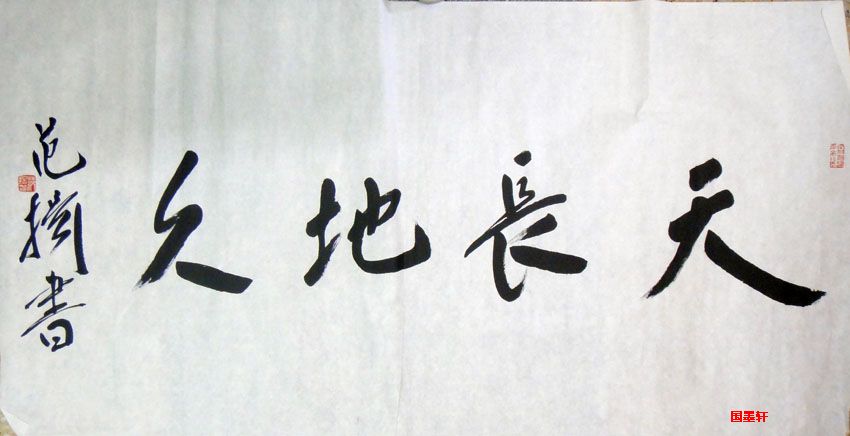 天長地久
范掦書
国墨轩